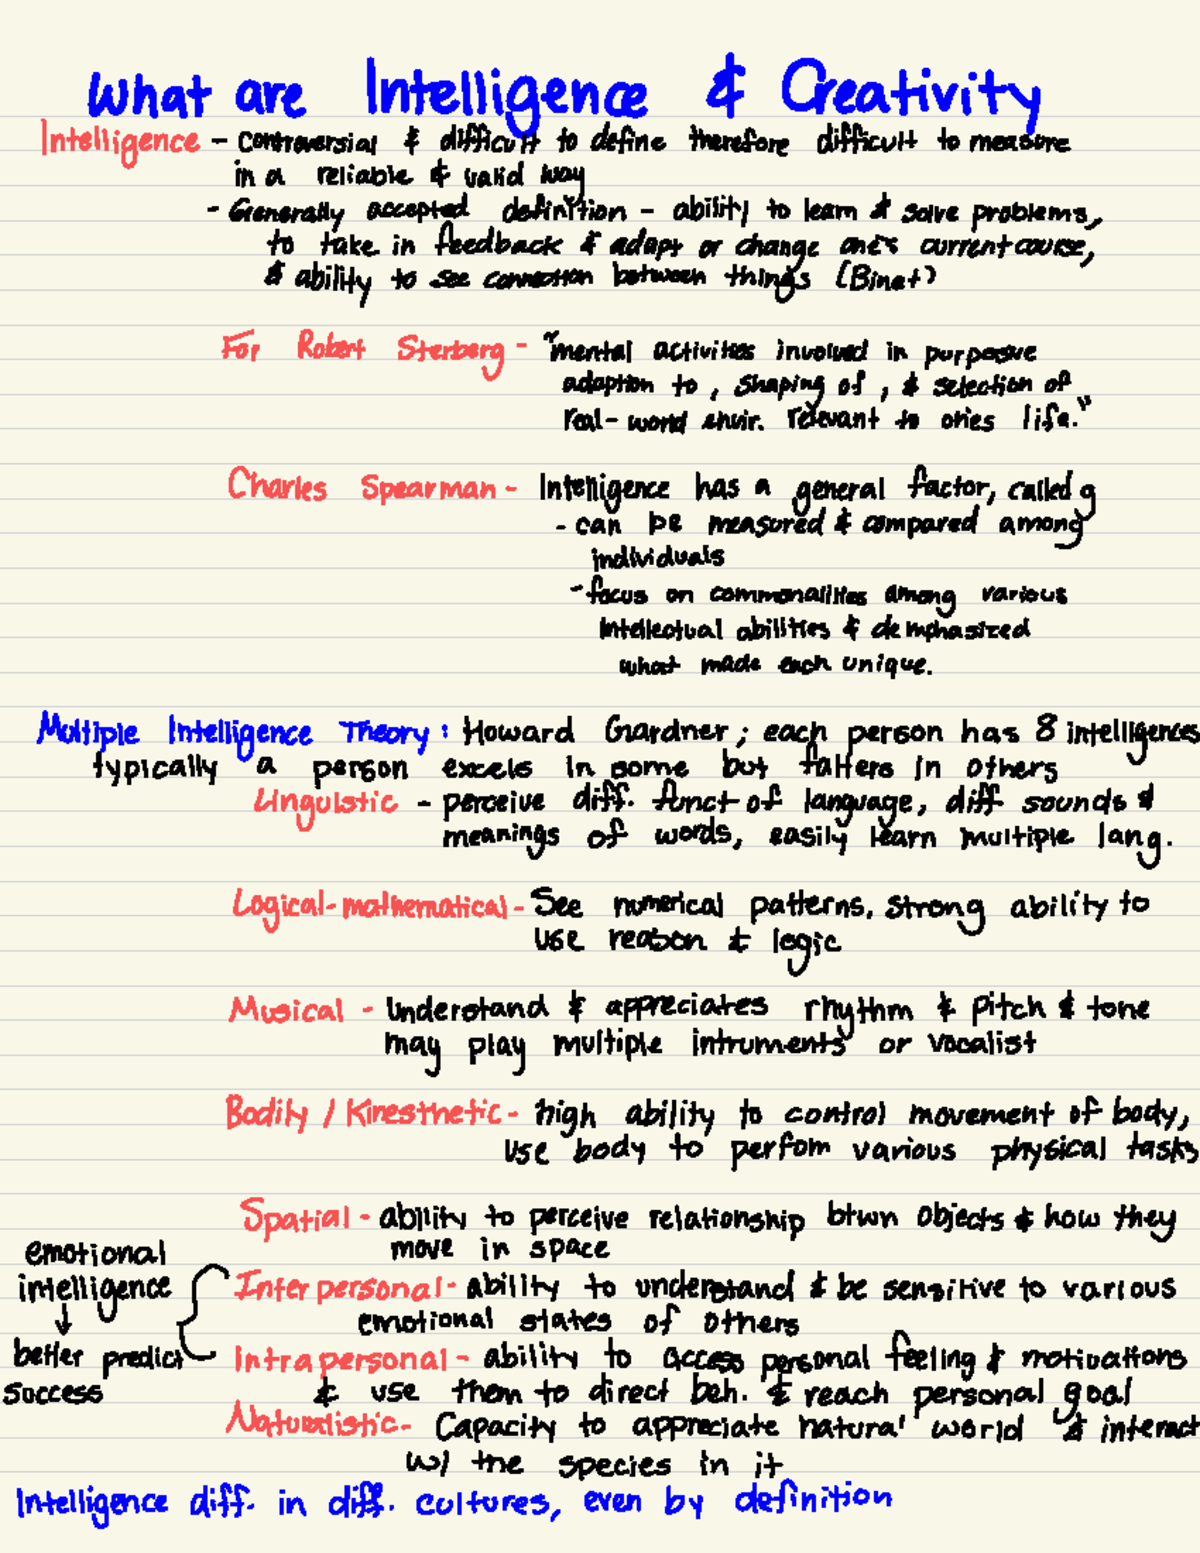 What are Intelligence & Creativity
Intelligence - controversial & difficult to define therefore difficult to measure
in a reliable & valid way
- Generally accepted definition - ability to learn & solve problems,
to take in feedback & adapt or change one's current course,
& ability to see connection between things (Binet)
For Robert Sterberg - "mental activities involved in purposive
adaption to, shaping of, & selection of
real-world envir. relevant to ones life."
Charles Spearman - Intelligence has a general factor, called g
- can be measured & compared among
individuals
- focus on commonalities among various
intellectual abilities & demphasized
what made each unique.
Multiple Intelligence Theory: Howard Gardner; each person has 8 intelligences
typically a person excels in some but falters in others
Linguistic - perceive diff. funct of language, diff sounds &
meanings of words, easily learn multiple lang.
Logical-mathematical - See numerical patterns, strong ability to
use reason & logic
Musical - Understand & appreciates rhythm & pitch & tone
may play multiple intruments or vocalist
Bodily / Kinesthetic - high ability to control movement of body,
use body to perfom various physical tasks
Spatial - ability to perceive relationship btwn objects & how they
move in space
emotional
intelligence
↓
better predict
success
Interpersonal - ability to understand & be sensitive to various
emotional states of others
Intrapersonal - ability to access personal feeling & motivations
& use them to direct beh. & reach personal goal
Naturalistic - Capacity to appreciate natural world & interact
w/ the species in it
Intelligence diff. in diff. cultures, even by definition